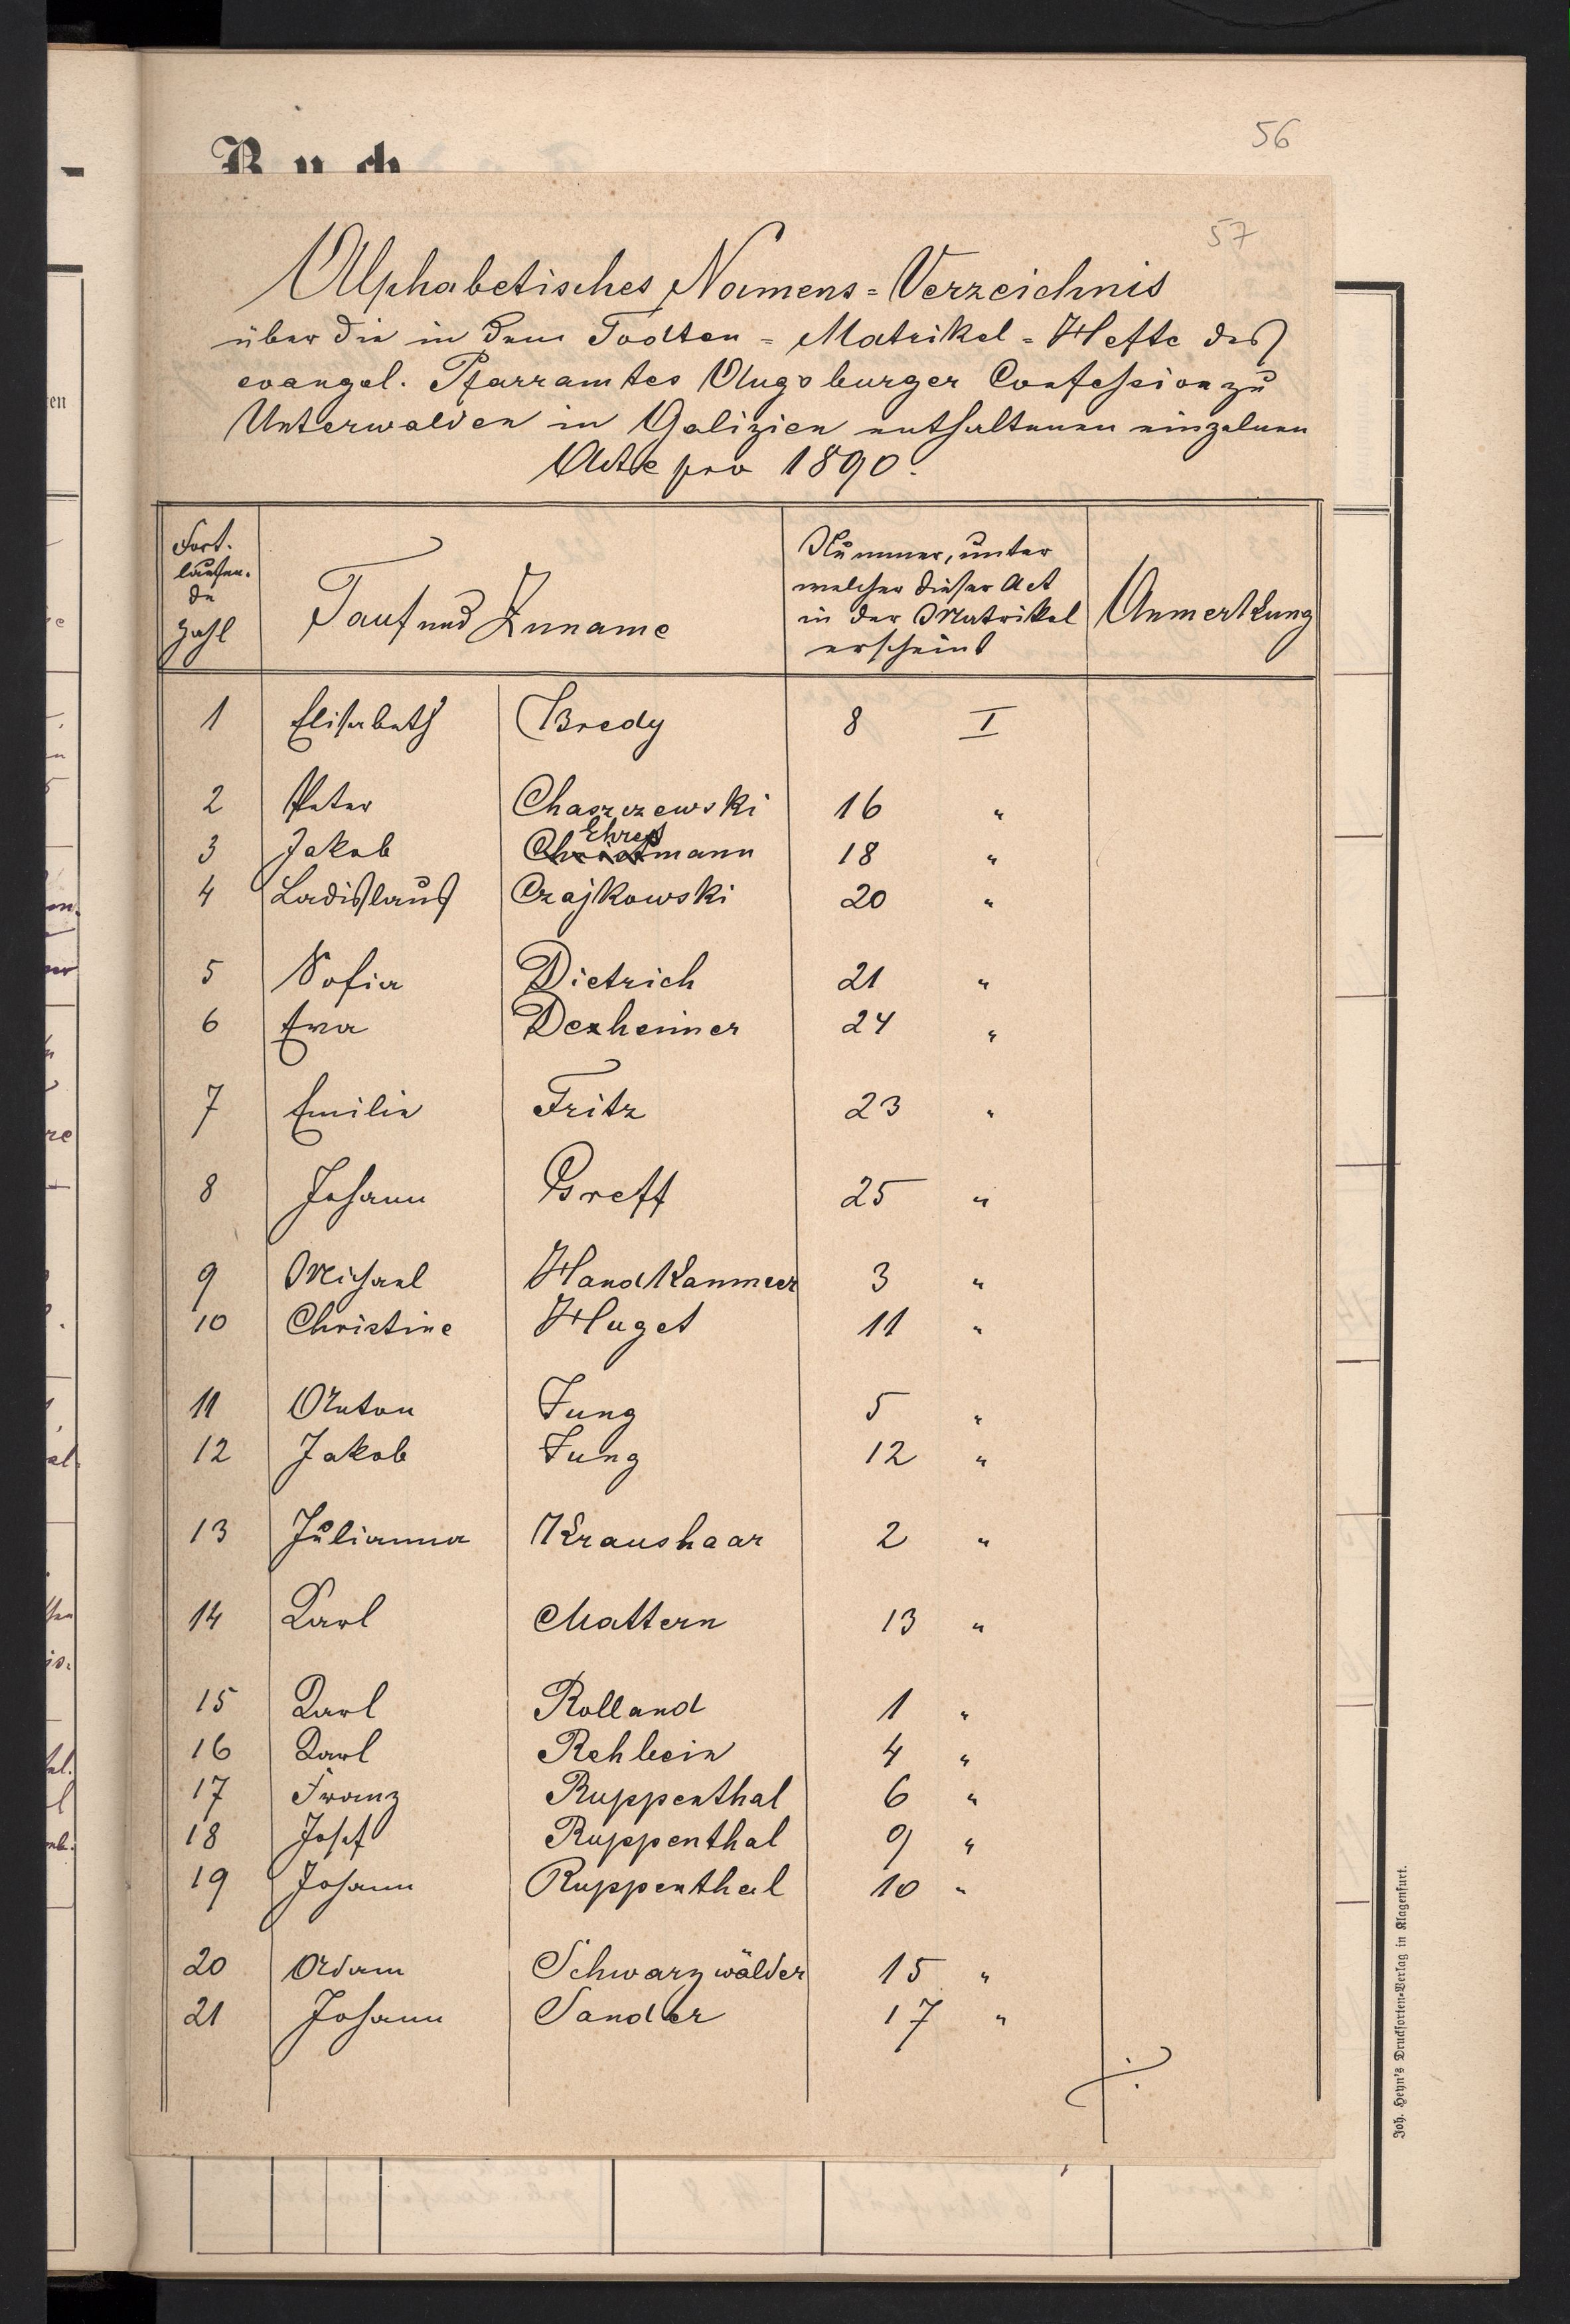 56
Buch
57
Alphabetisches Namens=Verzeichnis
über die in dem Todten=Matrikel=Hefte des
evangel. Pfarramtes Augsburger Confession zu
Unterwalden in Galizien enthaltenen einzelnen
Acte pro 1890.
Fort. laufen. de Zahl | Tauf und Zuname | Nummer, unter welcher dieser Act in der Matrikel erscheint | Anmerkung
1 Elisabeth Bredy 8 I
2 Peter Chaszczewski 16 "
Ehres
3 Jakob Christmann 18 "
4 Ladislaus Czajkowski 20 "
5 Sofia Dietrich 21 "
6 Eva Dexheimer 24 "
7 Emilie Fritz 23 "
8 Johann Greff 25 "
9 Michael Handkammer 3 "
10 Christine Huget 11 "
11 Anton Jung 5 "
12 Jakob Jung 12 "
13 Julianna Kraushaar 2 "
14 Karl Mattern 13 "
15 Karl Rolland 1 "
16 Karl Rehbein 4 "
17 Franz Ruppenthal 6 "
18 Josef Ruppenthal 9 "
19 Johann Ruppenthal 10 "
20 Adam Schwarzwälder 15 "
21 Johann Sandler 17 "
Joh. Heyn's Drucksorten=Verlag in Klagenfurt.